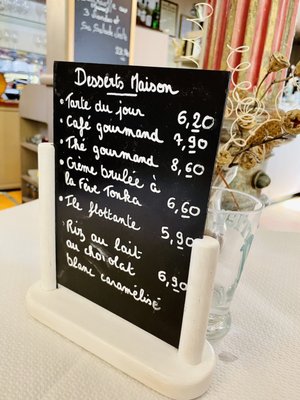 3 viandes
Sa Salade verte
22€
Desserts Maison
• Tarte du jour 6,20
• Café gourmand 7,90
• Thé gourmand 8,60
• Crème brulée à
la Fève Tonka 6,60
• Ile flottante 5,90
• Riz au lait
au chocolat
blanc caramélisé 6,90